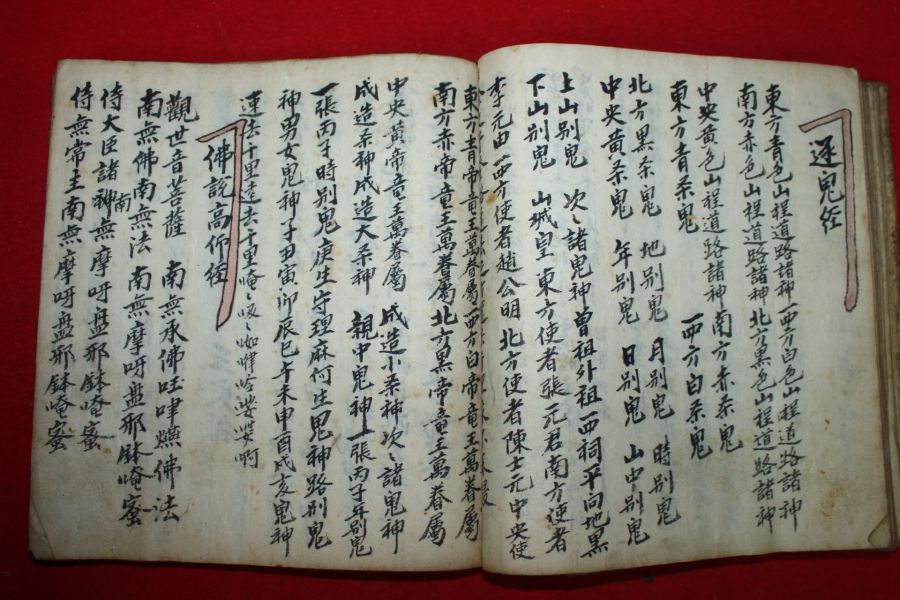 逐鬼經
東方青色山程道路諸神西方白色山程道路諸神
南方赤色山程道路諸神北方黑色山程道路諸神
中央黃色山程道路諸神南方赤杀鬼
東方青杀鬼 西方白杀鬼
北方黑杀鬼 地别鬼 月别鬼 時别鬼
中央黃杀鬼 年别鬼 日别鬼 山中别鬼
上山别鬼 次〻諸鬼神曾祖外祖西祠平向地黑
下山别鬼 山城皇東方使者張元君南方使者
李元田西方使者趙公明北方使者陳士元中央使
東方青帝竜王萬眷屬西方白帝竜王萬眷屬
南方赤帝竜王萬眷屬北方黑帝竜王萬眷屬
中央黃帝竜王萬眷屬 成造小杀神次〻諸鬼神
成造杀神成造大杀神 親中鬼神一張丙子年别鬼
一張丙子時别鬼庚生守理麻何生鬼神路别鬼
神男女鬼神子丑寅卯辰巳午未申酉戌亥鬼神
速去千里遠去千里唵〻
佛說高仰經
觀世音菩薩 南無承佛
南無佛南無法 南無摩呀盘邪鉢唵蜜
侍大臣諸神南無摩呀盘邪鉢唵蜜
侍無常主南無摩呀盘邪鉢唵蜜